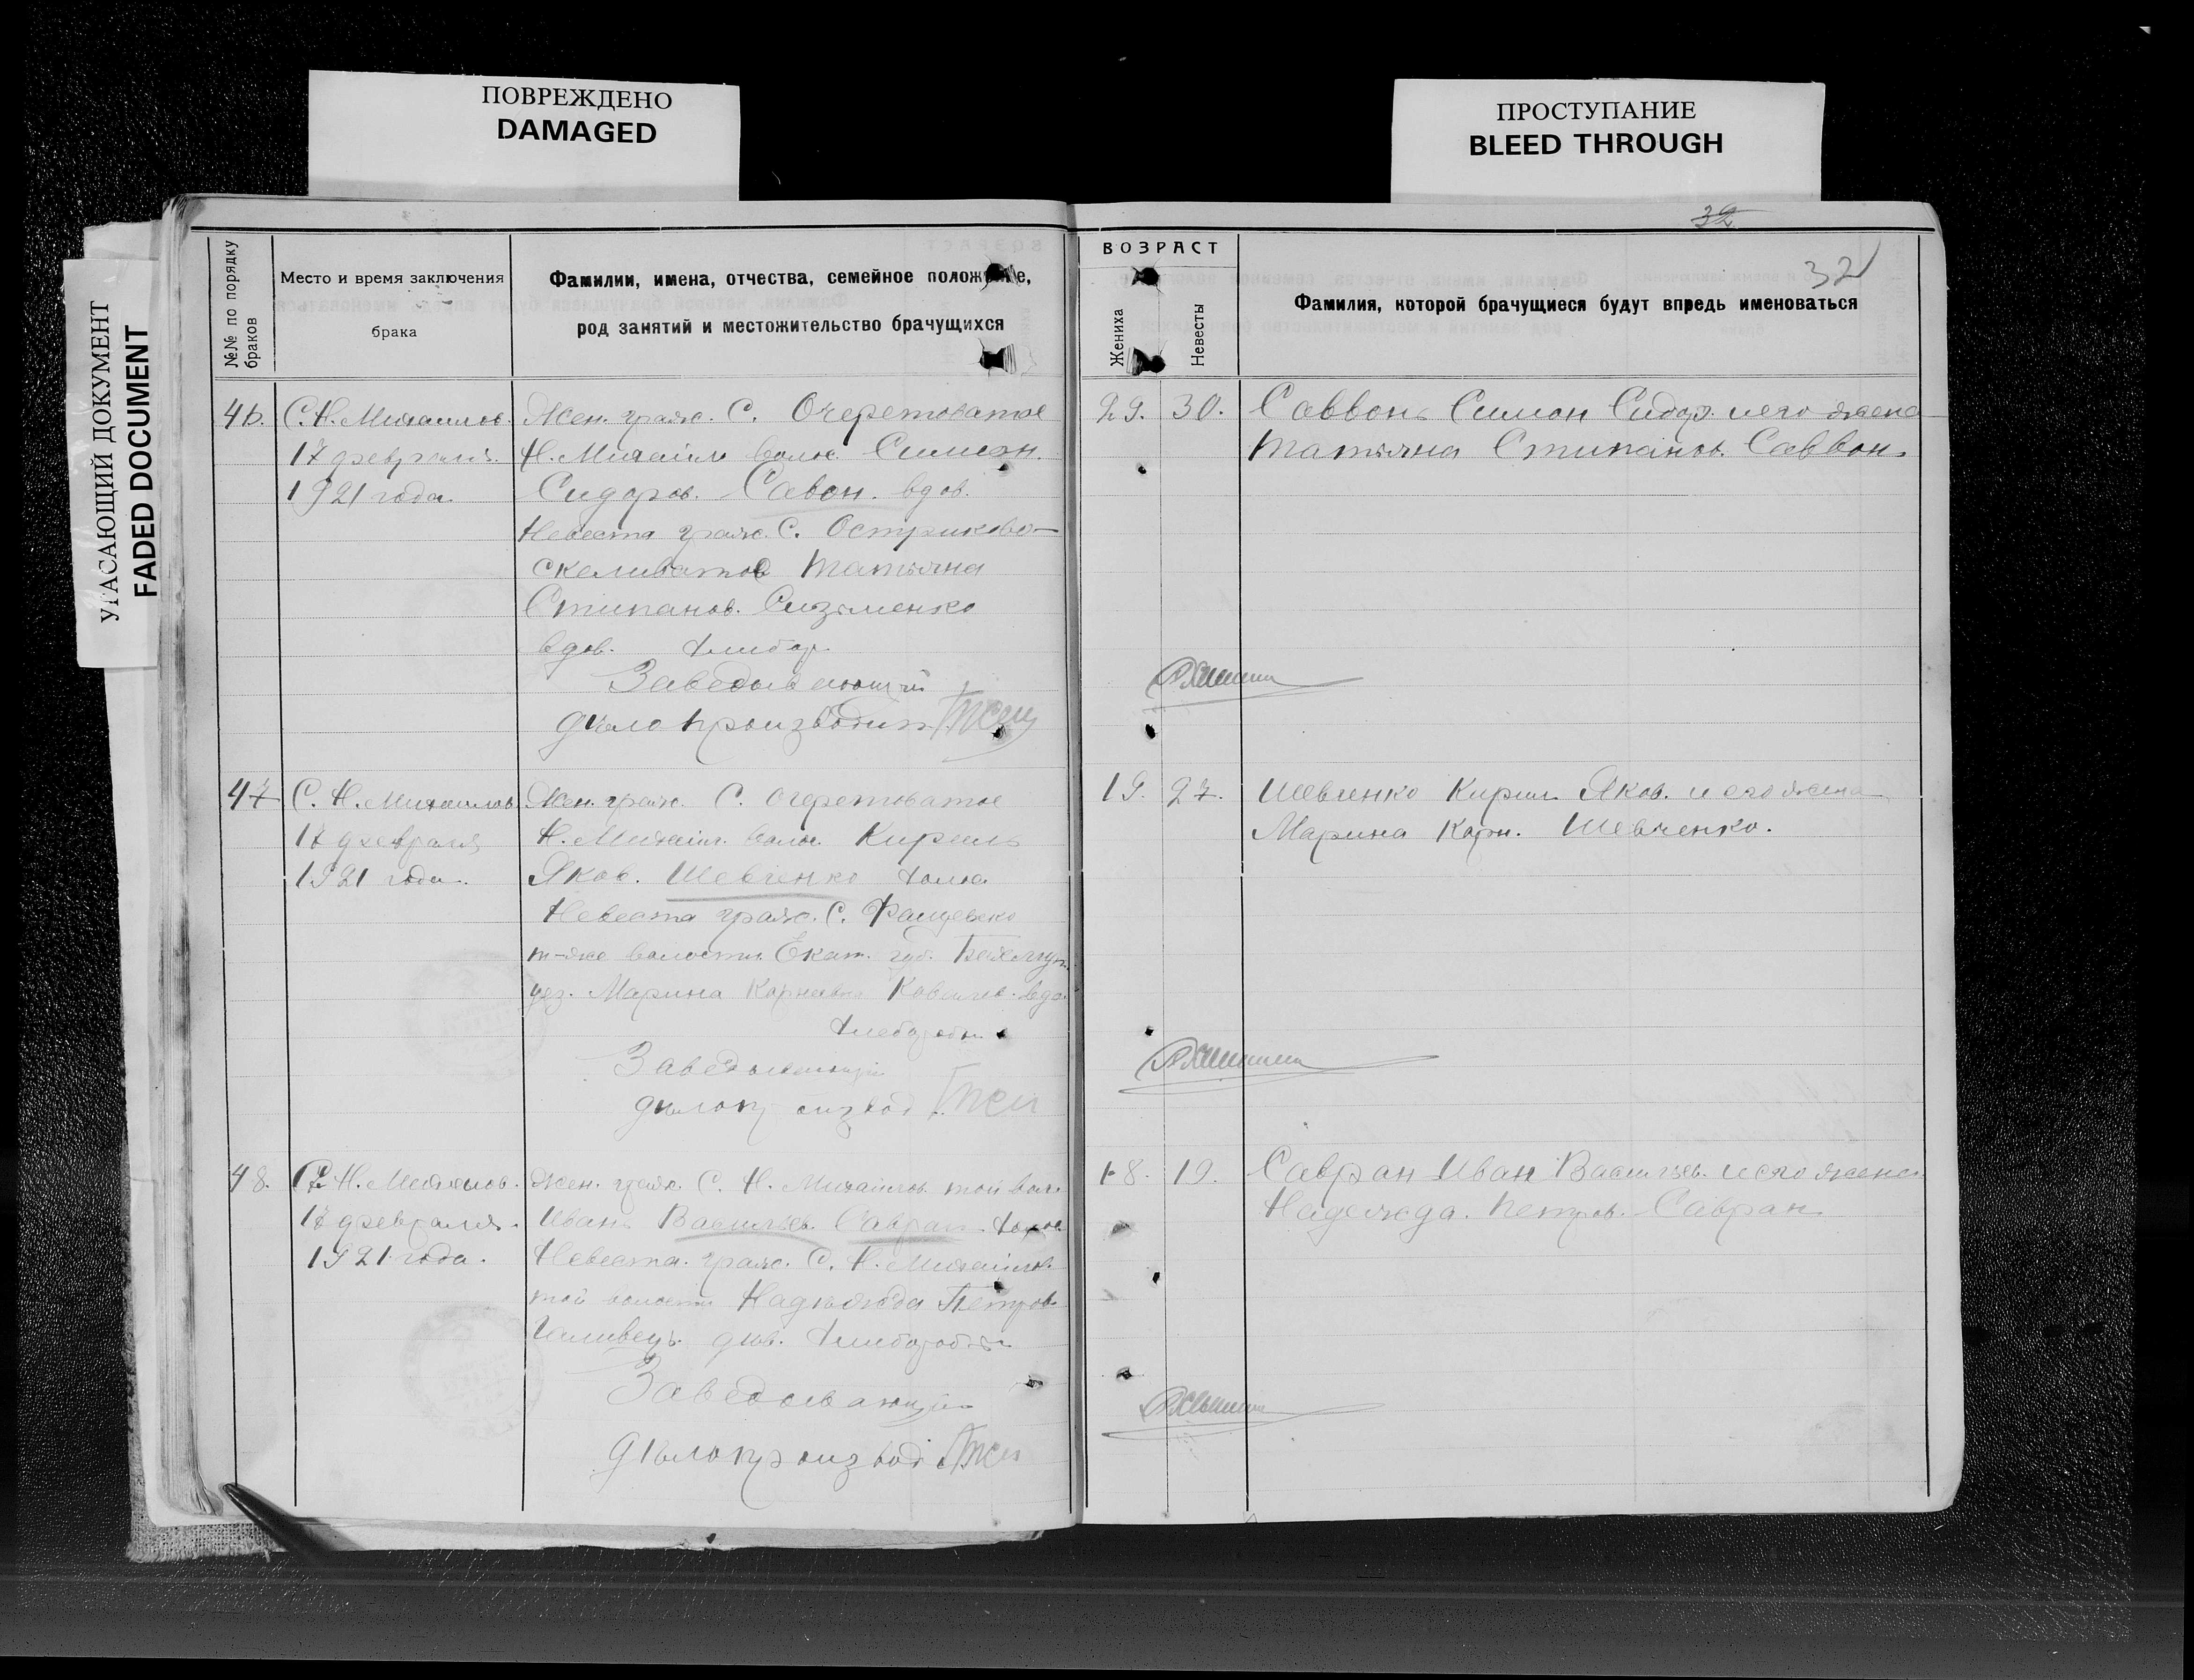 ПОВРЕЖДЕНО
DAMAGED
ПРОСТУПАНИЕ
BLEED THROUGH
УГАСАЮЩИЙ ДОКУМЕНТ
FADED DOCUMENT
32
32
№№ по порядку браков
Место и время заключения
брака
Фамилии, имена, отчества, семейное положение,
род занятий и местожительство брачущихся
ВОЗРАСТ
Жениха
Невесты
Фамилия, которой брачущиеся будут впредь именоваться
46. С. Н. Михаилов.
17 февраля
1921 года.
Жен. граж. С. Очеретоватое
Н. Михаил волос. Симеон
Сидоров. Савон. вдов.
Невеста граж. С. Остриково-
скелеватое Татьяна
Стипанов. Сизименко
вдов. хлибор.
Заведывающий
дѣлопроизводит.
29. 30. Саввонъ Симон Сидор. и его жена
Татьяна Стипанов. Саввон.
47 С. Н. Михаилов
17 февраля
1921 года.
Жен. граж. С. Очеретоватое
Н. Михаил. волос. Кирилъ
Яков. Шевченко холос
Невеста граж. С.
т-же волости Екат. губ.
уез. Марина Корнеевна вдо.
хлебороб
Заведывающий
дѣлопроизвод.
19. 27. Шевченко Кирил Яков. и его жена
Марина Корн. Шевченко.
48. С. Н. Михаилов.
17 февраля.
1921 года.
Жен. граж. С. Н. Михаилов. той вол.
Иван Васильев. Савран холос
Невеста. граж. С. Н. Михаилов.
той волости Надежда Петров.
дѣв. хлибороб
Заведывающий
дѣлопроизвод
18. 19. Савран Иван Васильев. и его жена
Надежда. Петров. Савран